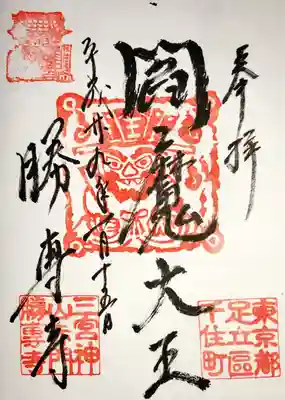 奉拝
閻魔大王
平成廿九年一月十五日
勝専寺
東京都
足立區
千住町
三宮神
山
勝専寺